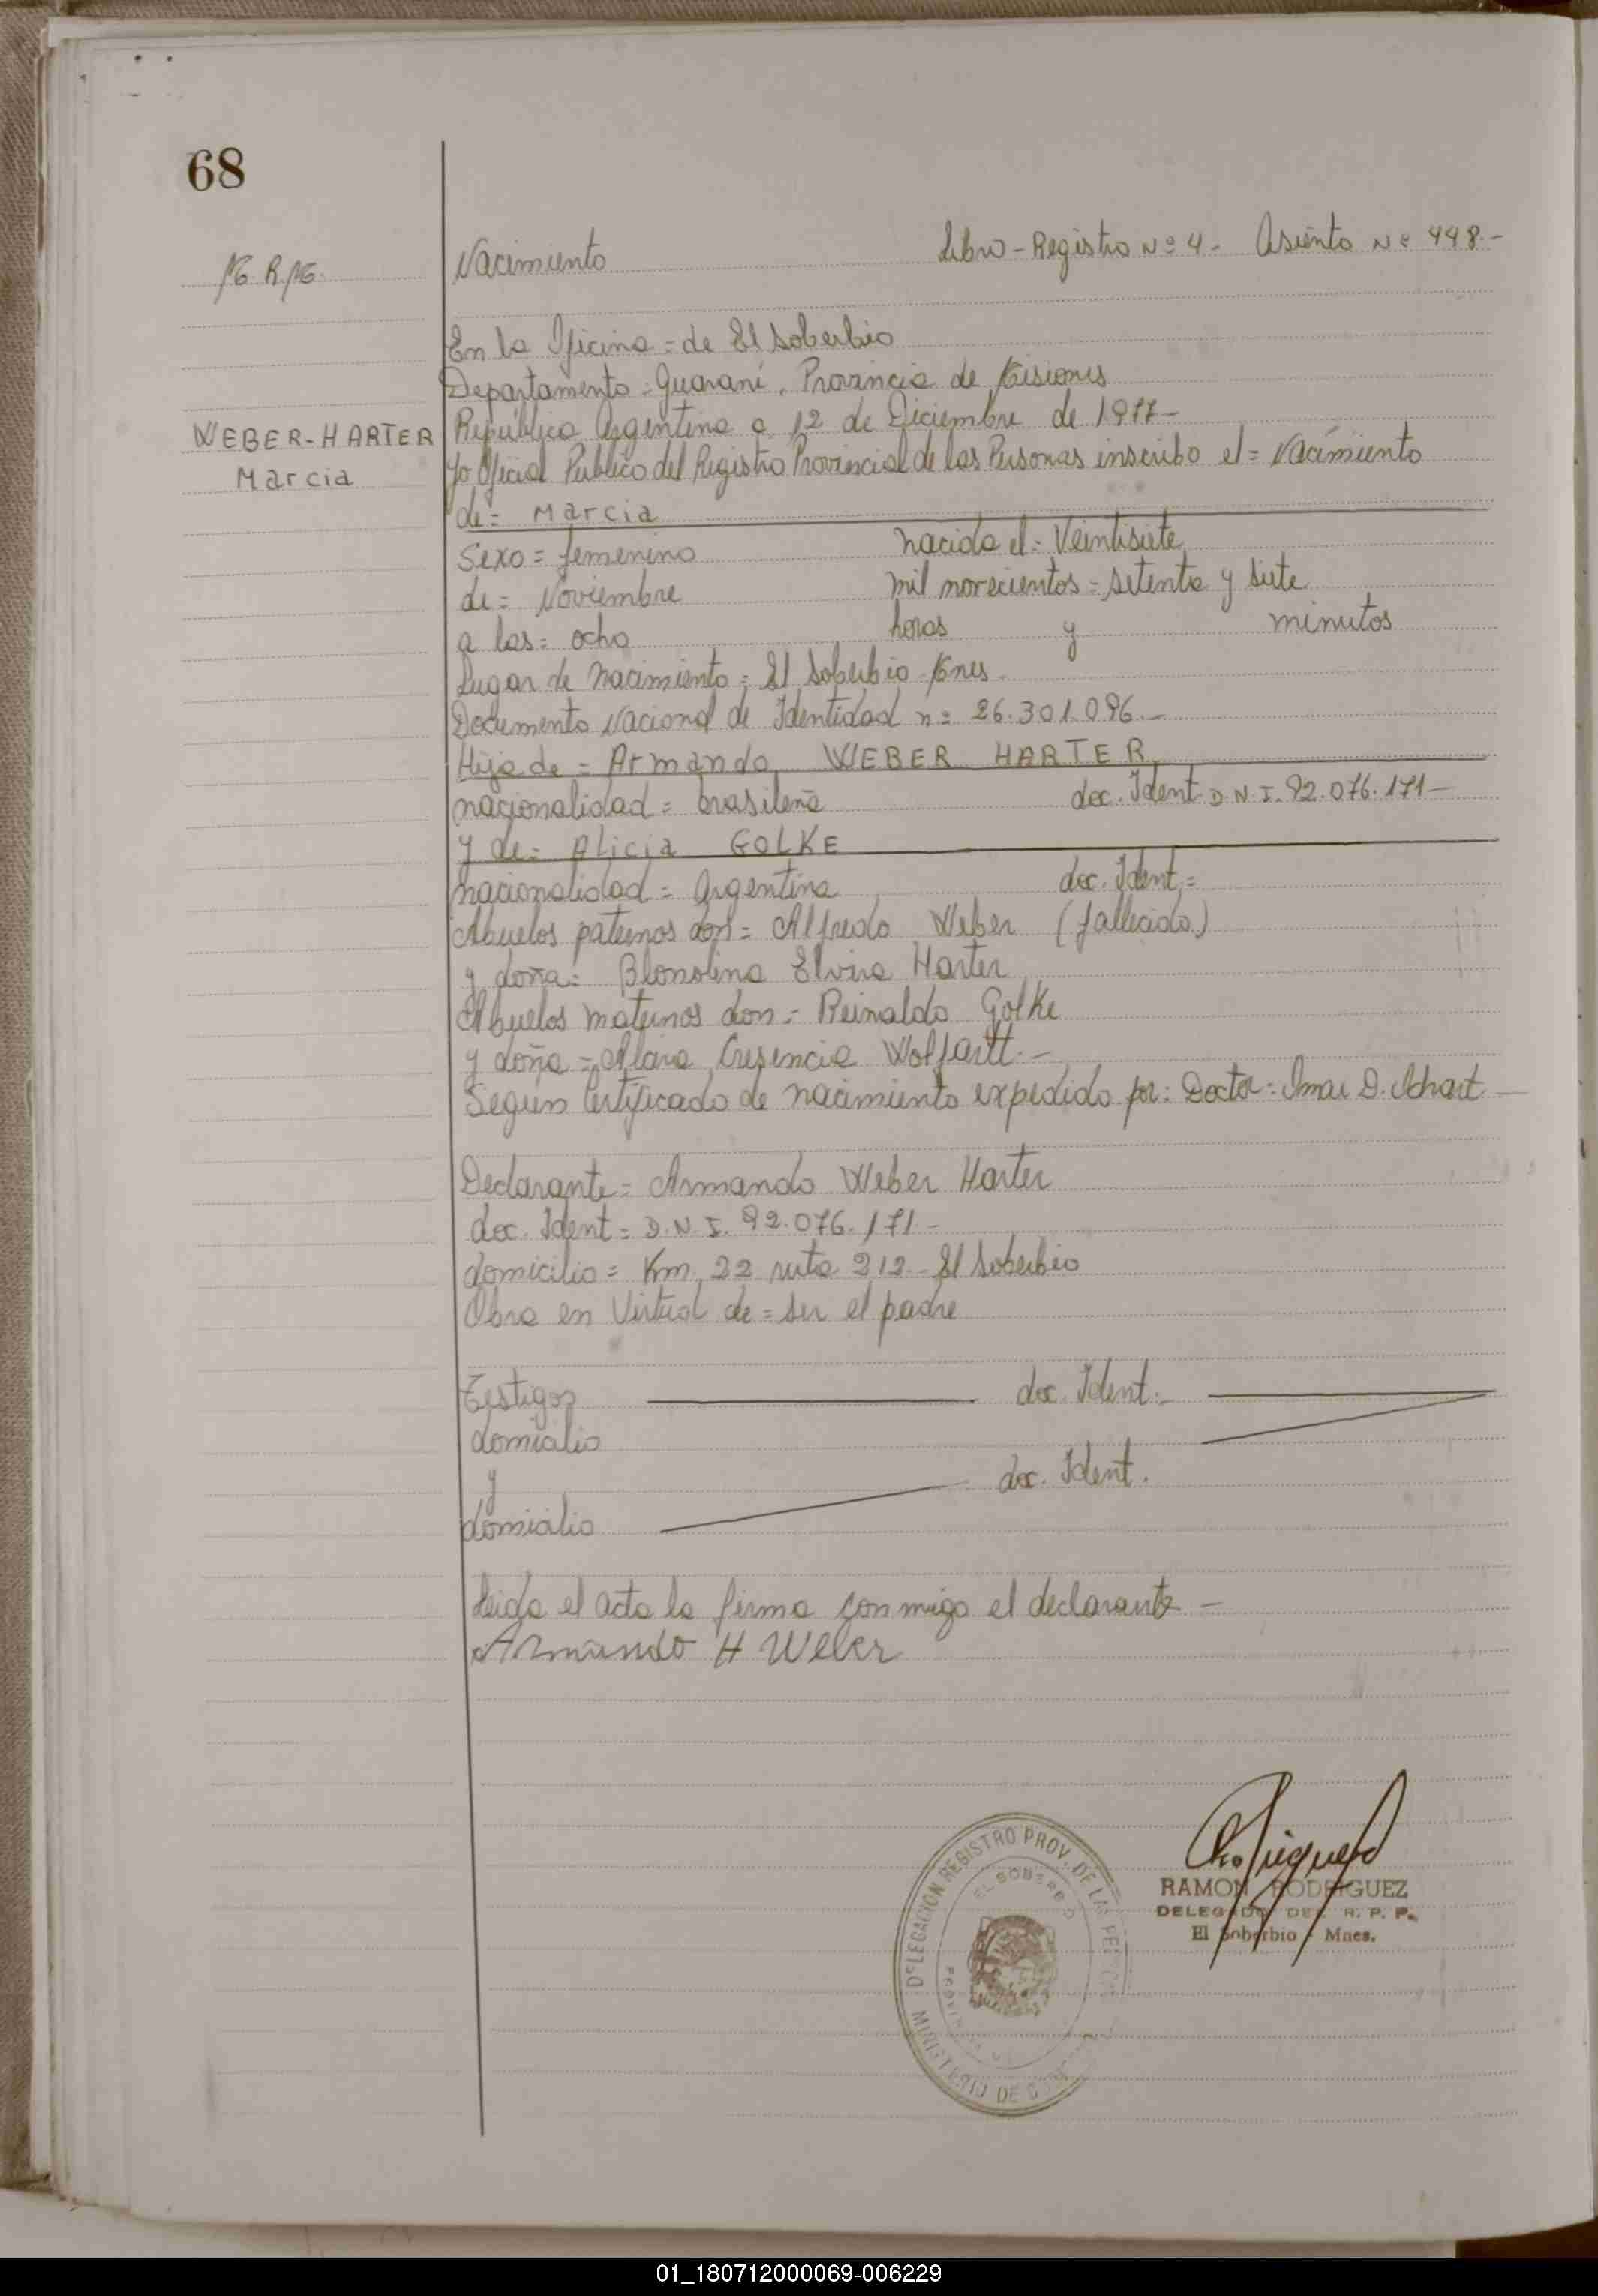 68
Nacimiento Libro-Registro Nº 4- Asiento Nº 448.-
En la Oficina = de El Soberbio
Departamento = Guaraní. Provincia de Misiones
República Argentina a 12 de Diciembre de 1977-
WEBER-HARTER
Marcia
Yo Oficial Público del Registro Provincial de las Personas inscribo el = Nacimiento
de = Marcia
Sexo = femenino nacida el = Veintisiete
de = Noviembre mil novecientos = setenta y siete
a las = ocho horas y minutos
Lugar de nacimiento = El Soberbio Mnes.
Documento Nacional de Identidad nº 26.301.096.-
Hija de = Armando WEBER HARTER
nacionalidad = brasileña doc. Ident D.N.I. 92.076.171-
y de = Alicia GOLKE
nacionalidad = Argentina doc. Ident =
Abuelos paternos don = Alfredo Weber (fallecido)
y doña = Elvira Harter
Abuelos maternos don = Reinaldo Golke
y doña = Wolfartt.-
Según Certificado de nacimiento expedido por: Doctor =
Declarante = Armando Weber Harter
doc. Ident = D.N.I. 92.076.171-
domicilio = Km 22 ruta 212 - El Soberbio
Obra en Virtud de = ser el padre
Testigos doc. Ident:
domicilio
y doc. Ident.
domicilio
Leida el acta la firma conmigo el declarante -
Armando H Weber
DELEGACION REGISTRO PROV. DE LAS
EL SOBERBIO
MINISTERIO DE
RAMON RODRIGUEZ
DELEGADO DEL R. P. P.
El Soberbio - Mnes.
01_180712000069-006229